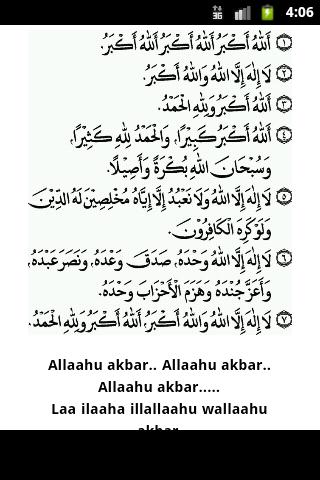 4:06
١ اَللهُ أَكْبَرُ اَللهُ أَكْبَرُ اَللهُ أَكْبَرُ.
٢ لَا إِلٰهَ إِلَّا اللهُ وَاللهُ أَكْبَرُ.
٣ اَللهُ أَكْبَرُ وَلِلّٰهِ الْحَمْدُ.
٤ اَللهُ أَكْبَرُ كَبِيْرًا، وَالْحَمْدُ لِلّٰهِ كَثِيْرًا،
وَسُبْحَانَ اللهِ بُكْرَةً وَأَصِيْلًا.
٥ لَا إِلٰهَ إِلَّا اللهُ وَلَا نَعْبُدُ إِلَّا إِيَّاهُ مُخْلِصِيْنَ لَهُ الدِّيْنَ
وَلَوْ كَرِهَ الْكَافِرُوْنَ.
٦ لَا إِلٰهَ إِلَّا اللهُ وَحْدَهُ، صَدَقَ وَعْدَهُ، وَنَصَرَ عَبْدَهُ،
وَأَعَزَّ جُنْدَهُ وَهَزَمَ الْأَحْزَابَ وَحْدَهُ.
٧ لَا إِلٰهَ إِلَّا اللهُ وَاللهُ أَكْبَرُ، اَللهُ أَكْبَرُ وَلِلّٰهِ الْحَمْدُ.
Allaahu akbar.. Allaahu akbar..
Allaahu akbar.....
Laa ilaaha illallaahu wallaahu
akbar